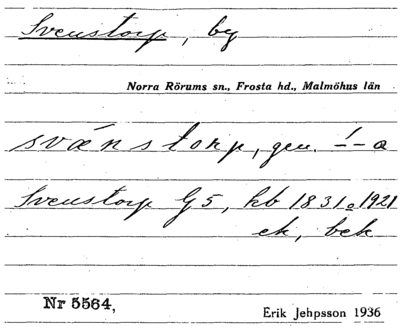 Svenstorp, by
Norra Rörums sn., Frosta hd., Malmöhus län
svǽnstorp, gen. -́-a
Svenstorp G5, kb 1831 o 1921
ek, bek
Nr 5564,
Erik Jehpsson 1936